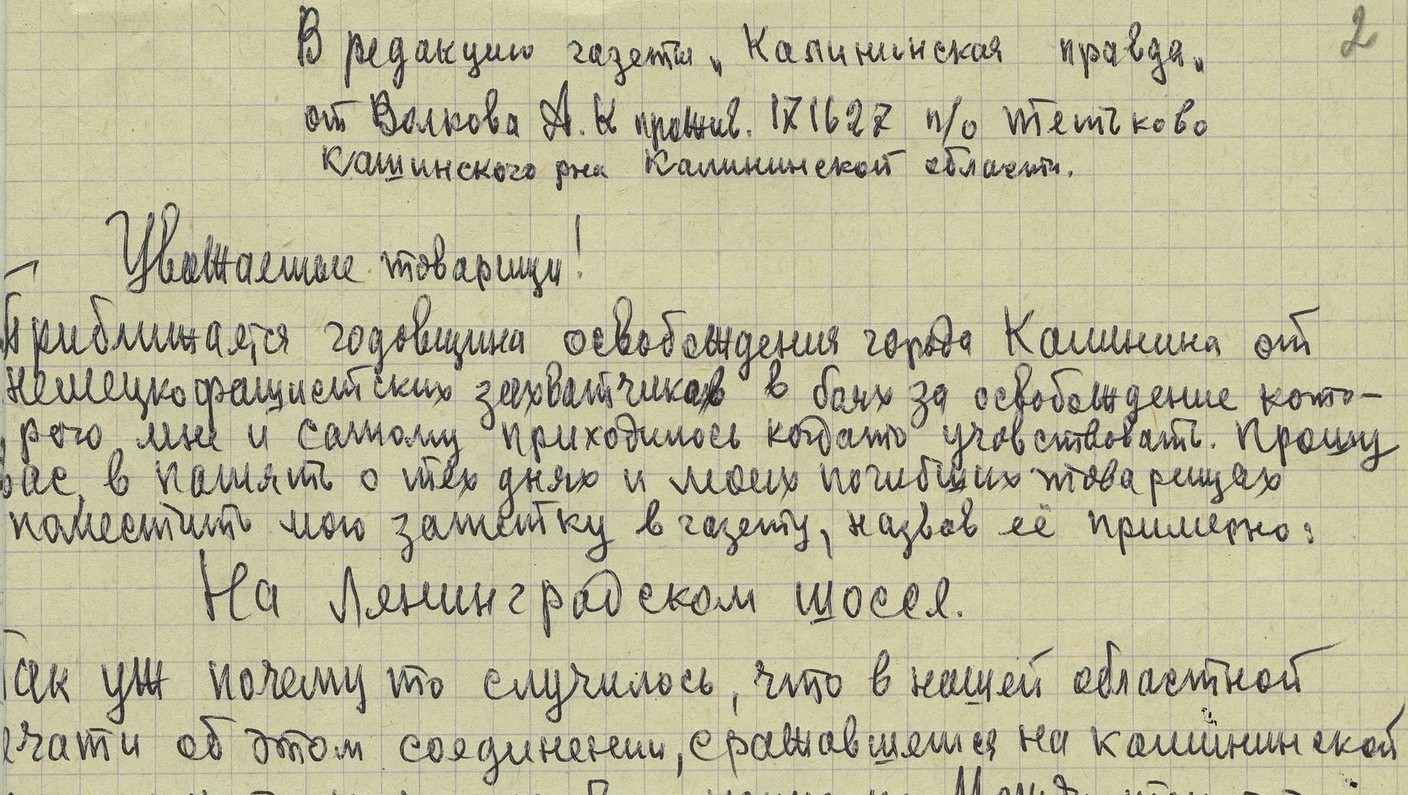 2
В редакцию газеты „Калининская правда„
от Волкова А. К прожив. 171627 п/о Тетьково
Кашинского рна Калининской области.
Уважаемые товарищи!
Приближается годовщина освобождения города Калинина от
немецкофашистских захватчиков в боях за освобождение кото-
рого мне и самому приходилось когдато учавствовать. Прошу
вас, в память о тех днях и моих погибших товарищах
поместить мою заметку в газету, назвав её примерно:
На Лянинградском шоссе.
Так уж почему то случилось, что в нашей областной
ечати об этом соединении, сражавшемся на калининской